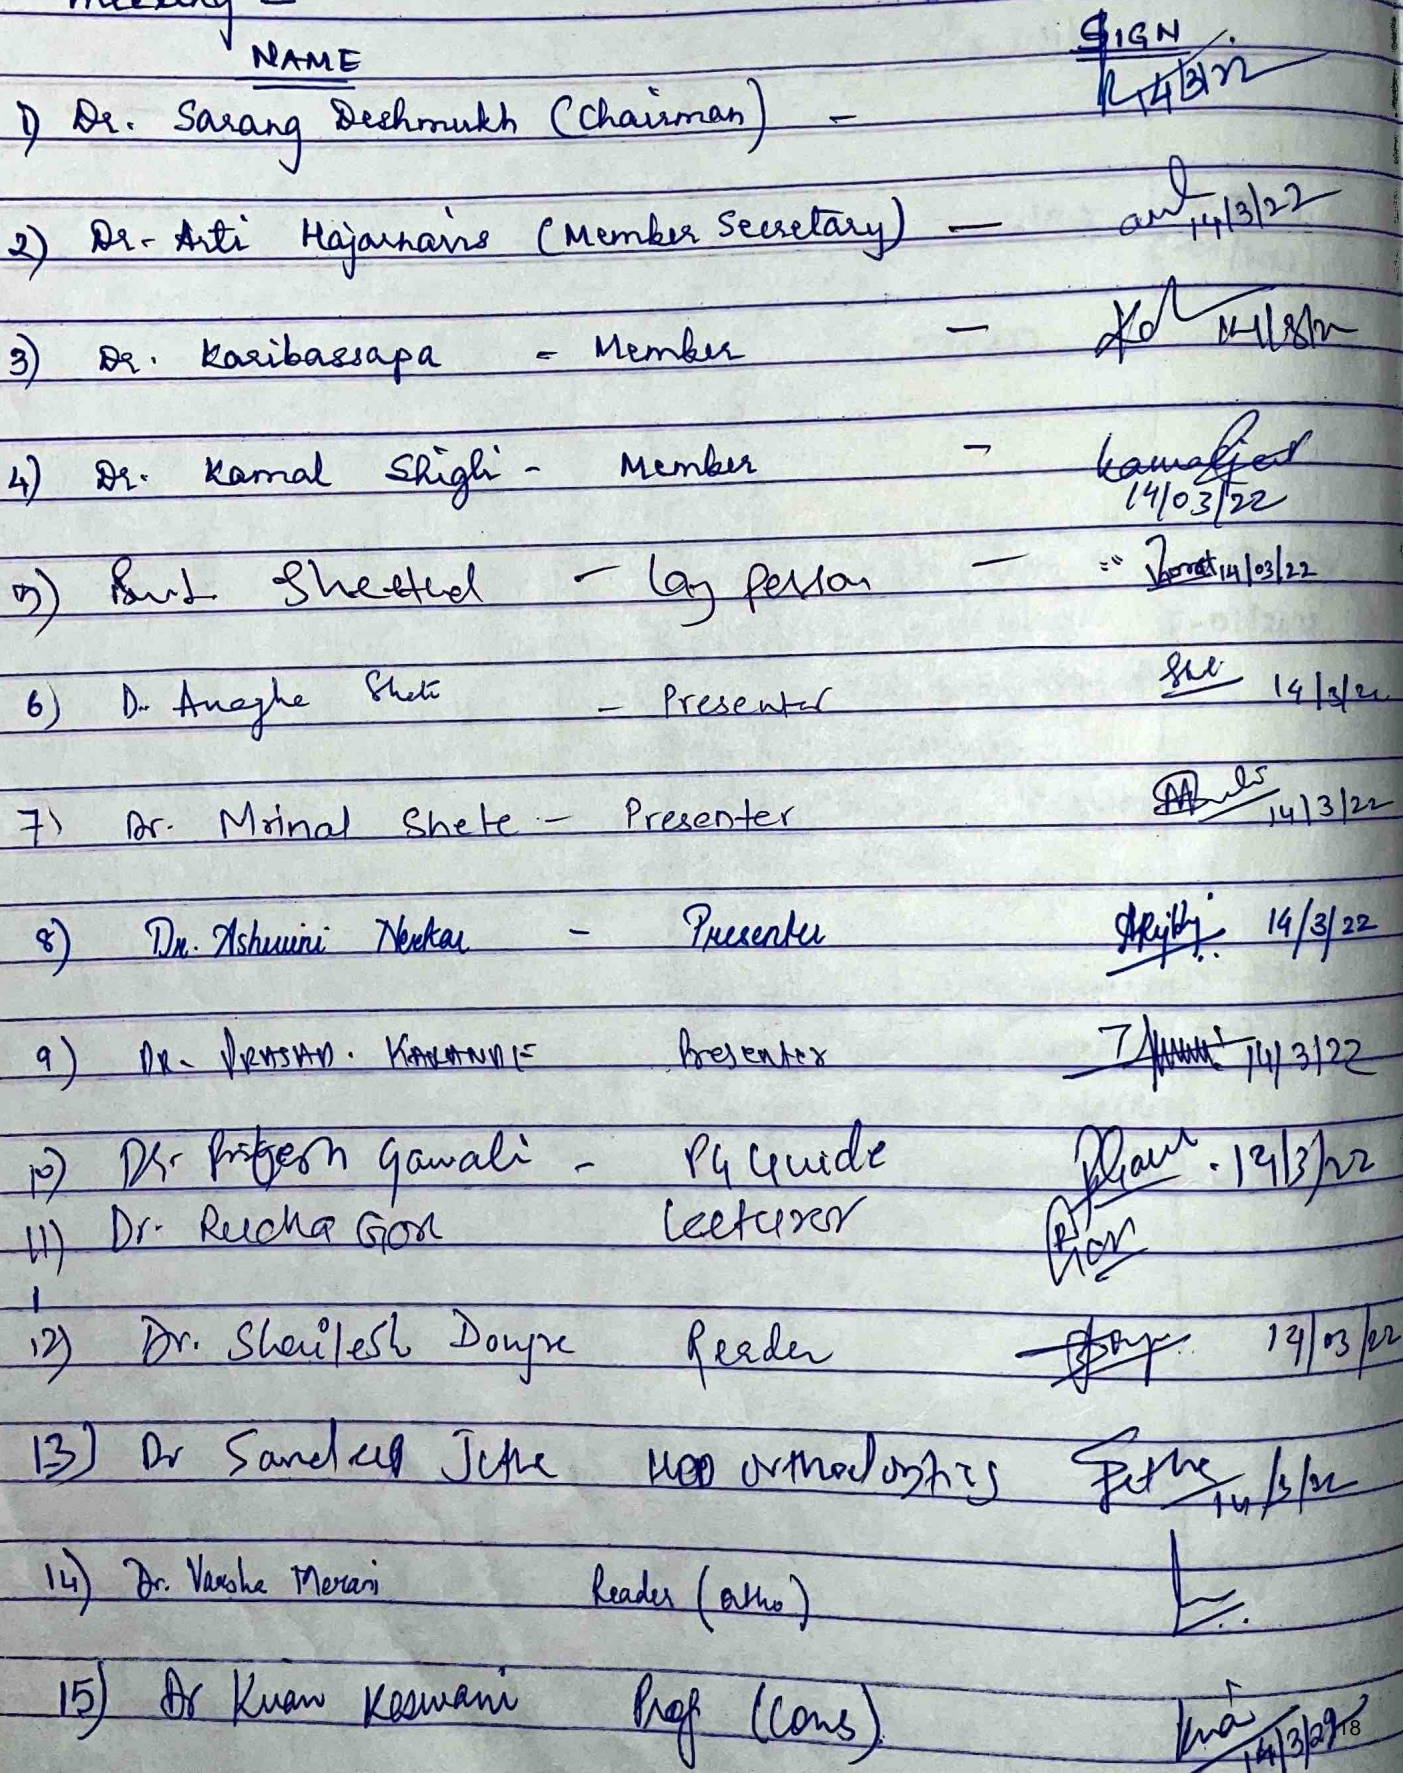 meeting -
NAME SIGN
1) Dr. Sarang Deshmukh (Chairman) - 14/3/22
2) Dr. Arti Hajarnavis (Member Secretary) - 14/3/22
3) Dr. Karibassapa - Member - 14/3/22
4) Dr. Kamal Shigli - Member - Kamal
14/03/22
5) - Lay person - 14/03/22
6) Dr. Anagha Shete - Presenter She 14/3/22
7) Dr. Mrinal Shete - Presenter 14/3/22
8) Dr. Ashwini Nerkar - Presenter 14/3/22
9) DR. PRASAD. KARANDE Presenter 14/3/22
10) Dr. Pritesh Gawali - PG Guide 14/3/22
11) Dr. Rucha Gor Lecturer RGor
12) Dr. Shailesh Dongre Reader 14/03/22
13) Dr Sandeep Jethe HOD Orthodontics Jethe 14/3/22
14) Dr. Varsha Merani Reader (ortho)
15) Dr Kiran Keswani Prof (Cons) 14/3/22
18